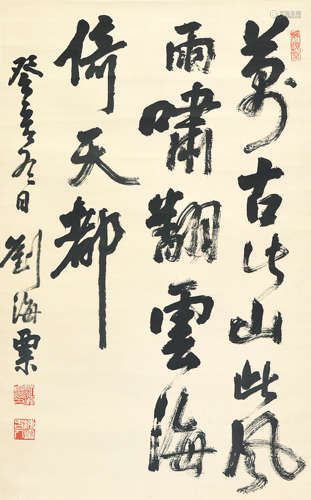 萬古此山此風
雨嘯翻雲海
倚天都
癸亥冬日 劉海粟